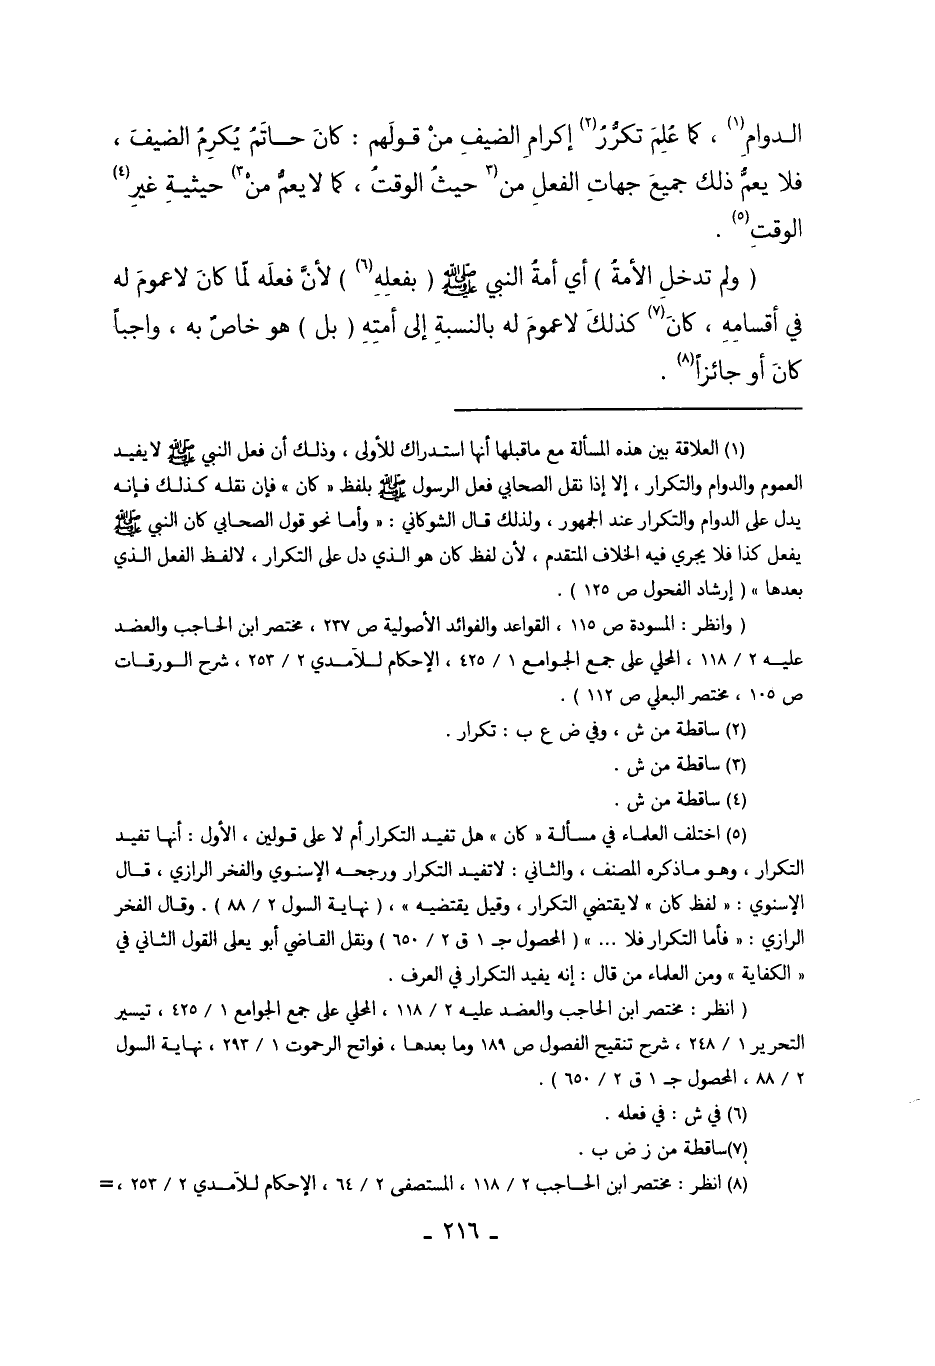 الـدوامِ(١) ، كما عُلِمَ تكرُّرُ(٢) إكرامِ الضيفِ منْ قـولَهم : كانَ حـاتَمُ يُكرِمُ الضيفَ ،
فلا يعمُّ ذلك جميعَ جهاتِ الفعلِ من(٣ حيثُ الوقتُ ، كما لا يعمُّ منْ٣) حيثيةِ غيرِ(٤)
الوقتِ(٥) .
( ولم تدخلِ الأمةُ ) أي أمةُ النبي ﷺ ( بفعلِهِ(٦) ) لأنَّ فعلَه لمّا كانَ لاعمومَ له
في أقسامِهِ ، كانَ(٧) كذلكَ لاعمومَ له بالنسبةِ إلى أمتِهِ ( بل ) هو خاصٌ به ، واجباً
كانَ أو جائزاً(٨) .
(١) العلاقة بين هذه المسألة مع ماقبلها أنها استدراك للأولى ، وذلك أن فعل النبي ﷺ لايفيد
العموم والدوام والتكرار ، إلا إذا نقل الصحابي فعل الرسول ﷺ بلفظ « كان » فإن نقله كذلك فإنه
يدل على الدوام والتكرار عند الجمهور ، ولذلك قال الشوكاني : « وأما نحو قول الصحابي كان النبي ﷺ
يفعل كذا فلا يجري فيه الخلاف المتقدم ، لأن لفظ كان هو الذي دل على التكرار ، لالفظ الفعل الذي
بعدها » ( إرشاد الفحول ص ١٢٥ ) .
( وانظر : المسودة ص ١١٥ ، القواعد والفوائد الأصولية ص ٢٣٧ ، مختصر ابن الحاجب والعضد
عليه ٢ / ١١٨ ، المحلي على جمع الجوامع ١ / ٤٢٥ ، الإحكام للآمدي ٢ / ٢٥٣ ، شرح الورقات
ص ١٠٥ ، مختصر البعلي ص ١١٢ ) .
(٢) ساقطة من ش ، وفي ض ع ب : تكرار .
(٣) ساقطة من ش .
(٤) ساقطة من ش .
(٥) اختلف العلماء في مسألة « كان » هل تفيد التكرار أم لا على قولين ، الأول : أنها تفيد
التكرار ، وهو ماذكره المصنف ، والثاني : لاتفيد التكرار ورجحه الإسنوي والفخر الرازي ، قال
الإسنوي : « لفظ كان » لايقتضي التكرار ، وقيل يقتضيه » ، ( نهاية السول ٢ / ٨٨ ) . وقال الفخر
الرازي : « فأما التكرار فلا ... » ( المحصول جـ ١ ق ٢ / ٦٥٠ ) ونقل القاضي أبو يعلى القول الثاني في
« الكفاية » ومن العلماء من قال : إنه يفيد التكرار في العرف .
( انظر : مختصر ابن الحاجب والعضد عليه ٢ / ١١٨ ، المحلي على جمع الجوامع ١ / ٤٢٥ ، تيسير
التحرير ١ / ٢٤٨ ، شرح تنقيح الفصول ص ١٨٩ وما بعدها ، فواتح الرحموت ١ / ٢٩٣ ، نهاية السول
٢ / ٨٨ ، المحصول جـ ١ ق ٢ / ٦٥٠ ) .
(٦) في ش : في فعله .
(٧)ساقطة من ز ض ب .
(٨) انظر : مختصر ابن الحاجب ٢ / ١١٨ ، المستصفى ٢ / ٦٤ ، الإحكام للآمدي ٢ / ٢٥٣ ، =
- ٢١٦ -